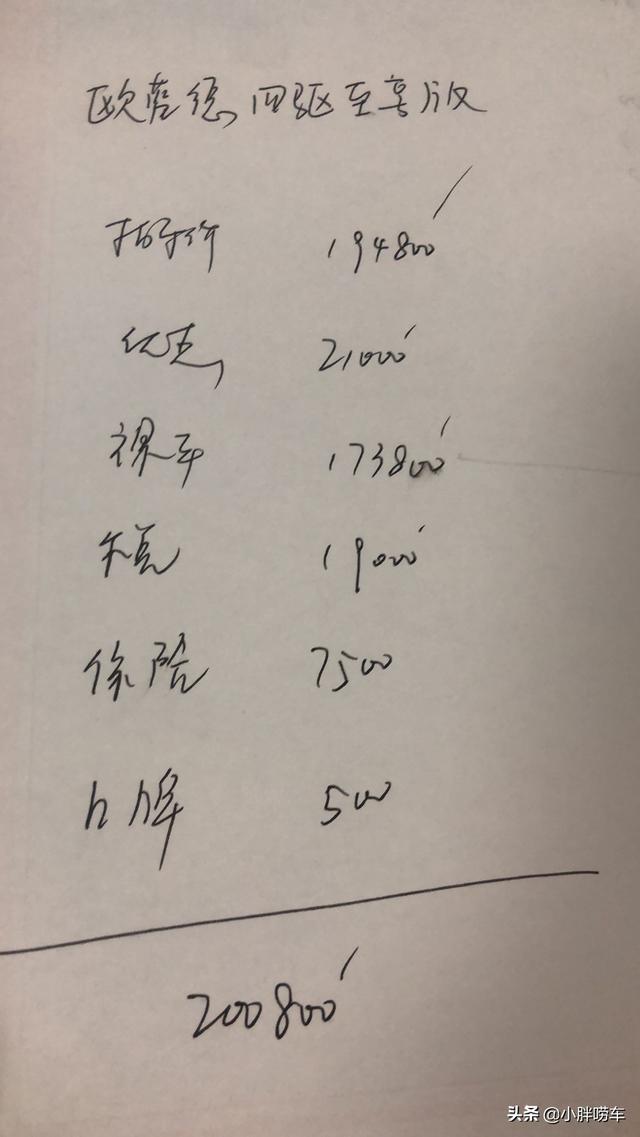 欧蓝德四驱至尊版
指导价 194800
优惠 21000
裸车 173800
车税 19000
保险 7500
上牌 500
200800
头条 @小胖唠车